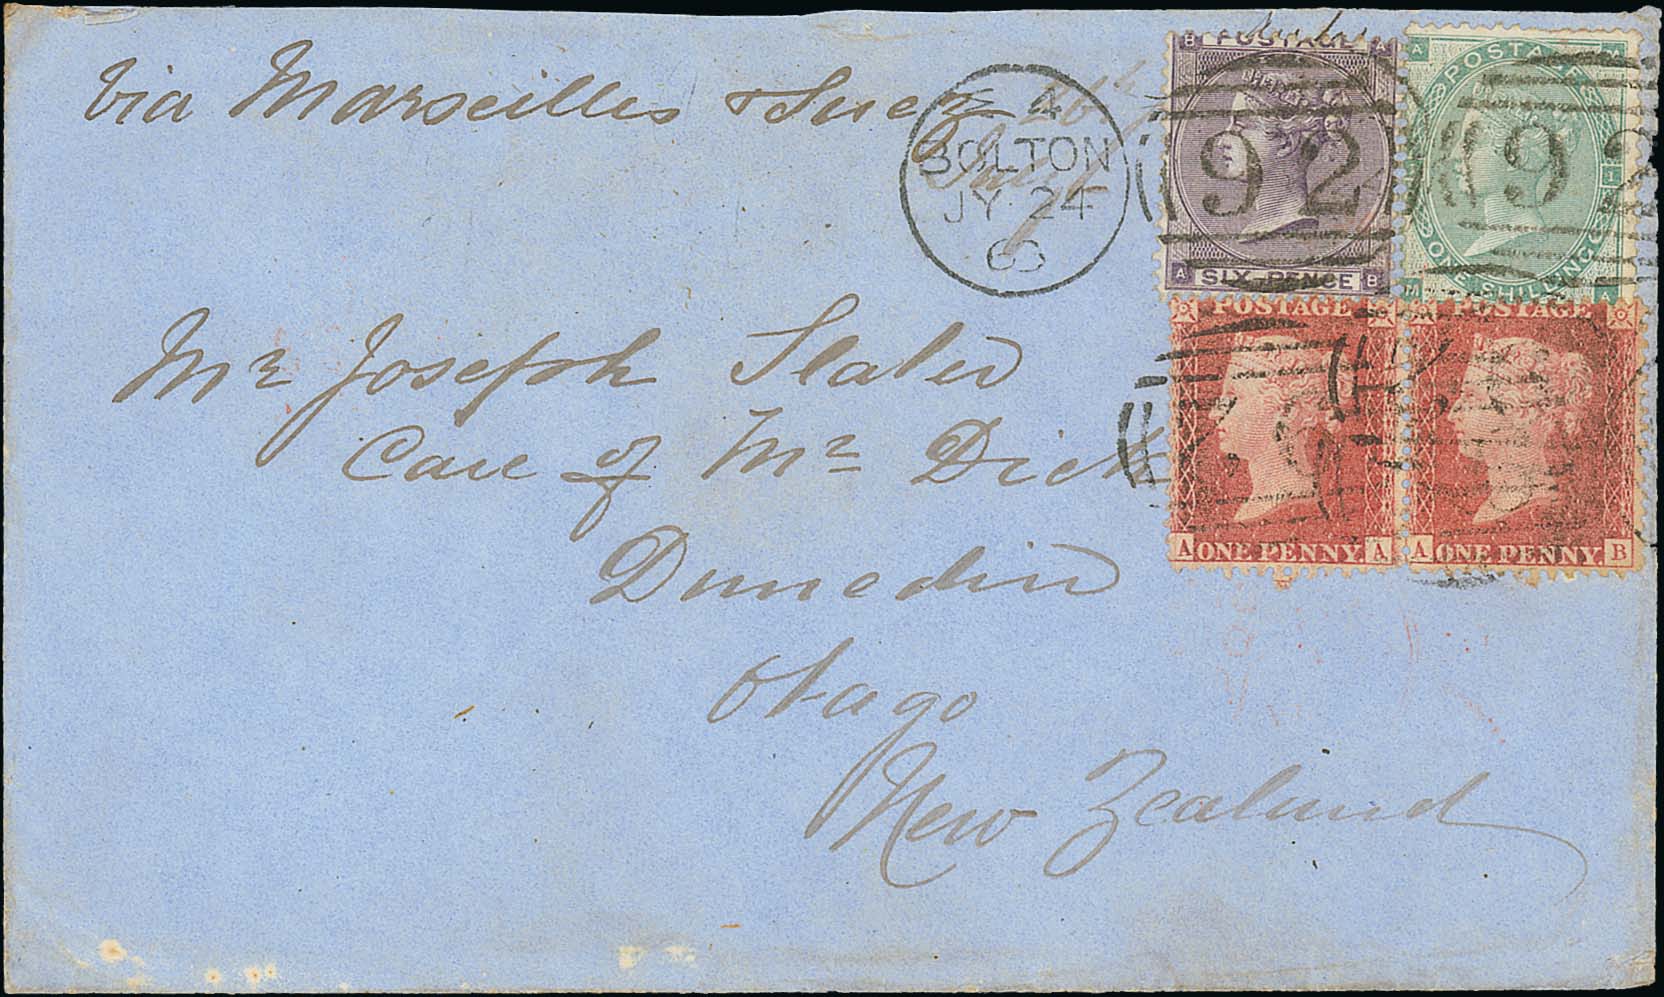 via Marseilles & Suez
4
BOLTON
JY 24
Mr Joseph Slater
Care of Mr Dick
Dunedin
Otago
New Zealand
B POSTAGE A
92
A SIX PENCE B
A POSTAGE M
1
92
M ONE SHILLING A
POSTAGE
A ONE PENNY A
POSTAGE
A ONE PENNY. B